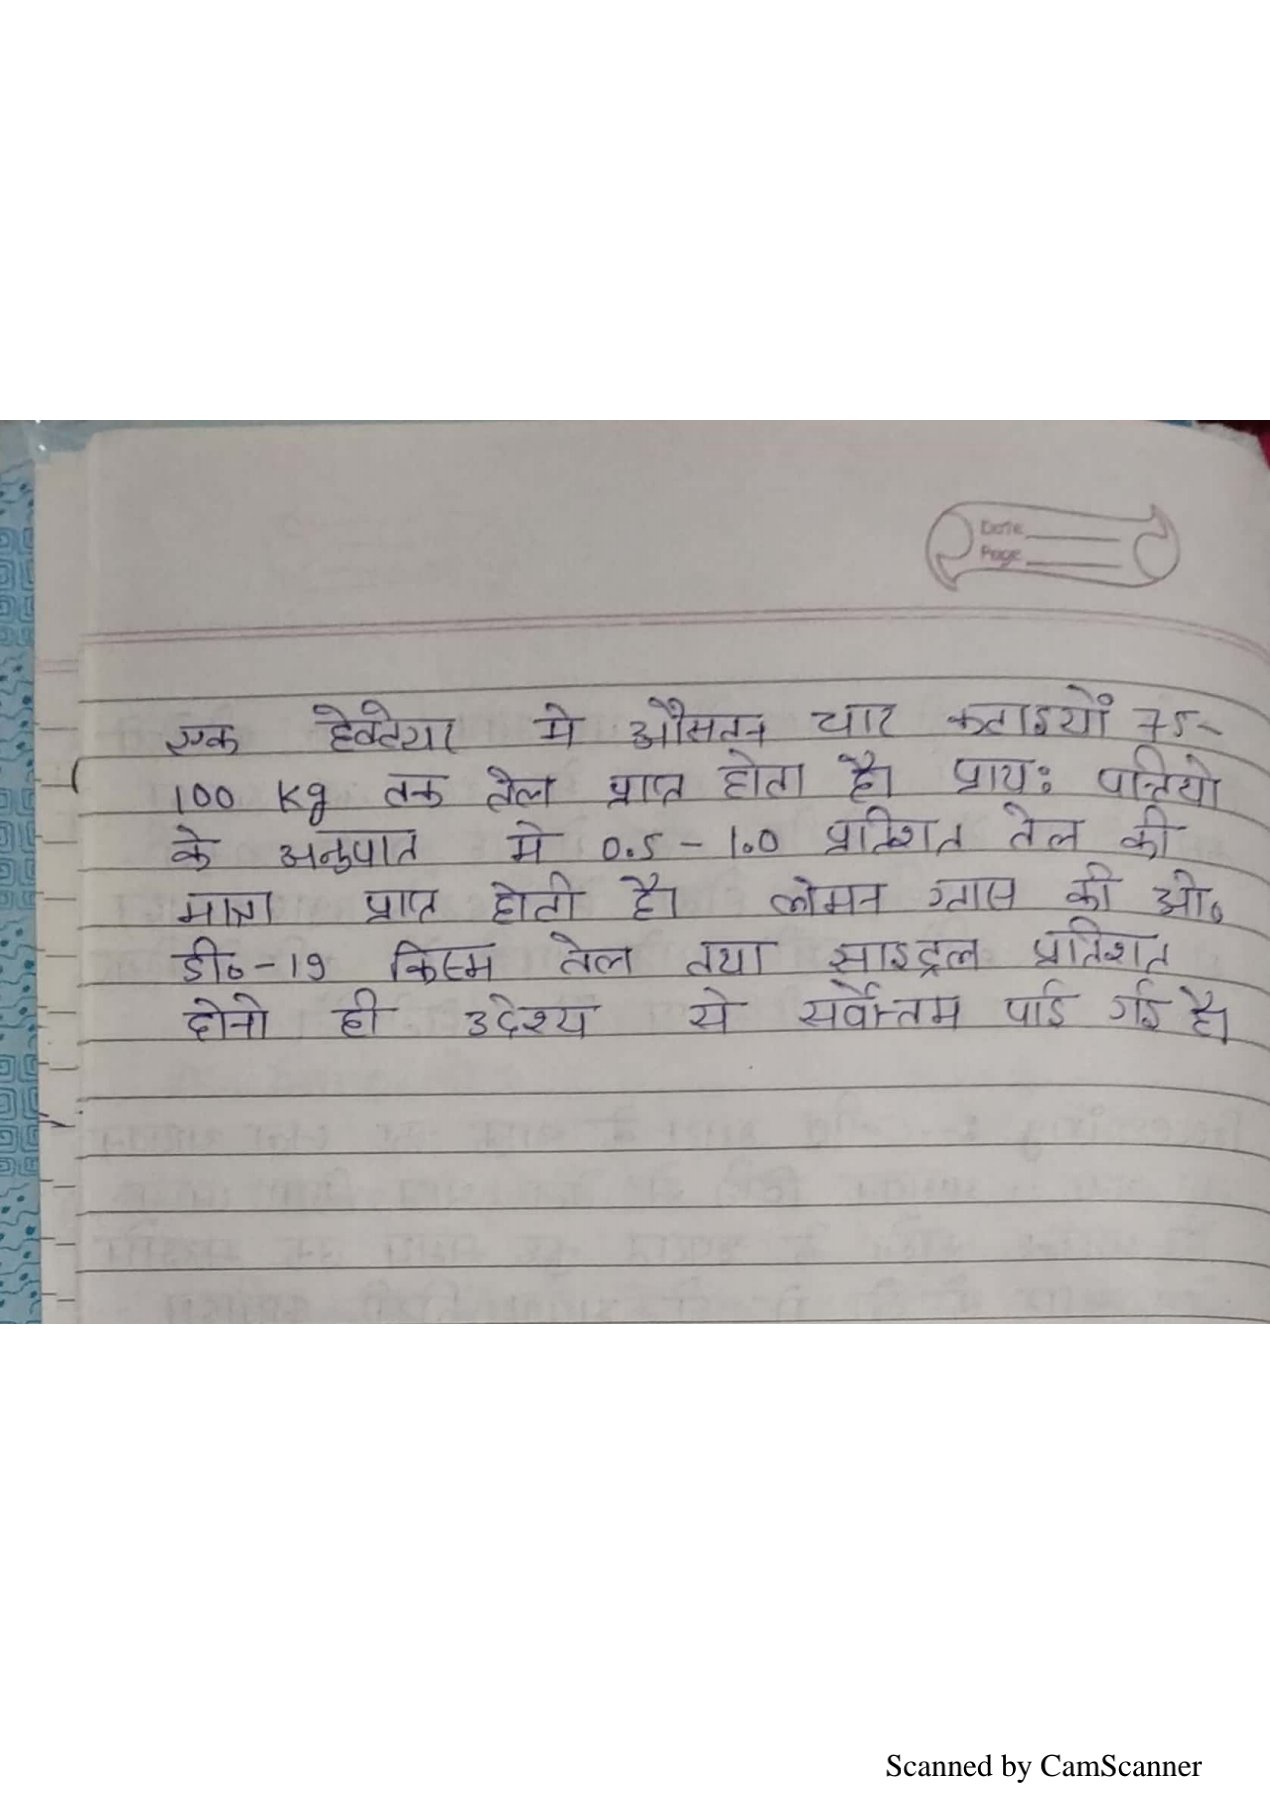 Date
Page
एक हेक्टेयर मे औसतन चार कटाइयों 75-
100 kg तक तेल प्राप्त होता है। प्रायः पत्तियो
के अनुपात मे 0.5 - 1.0 प्रतिशत तेल की
मात्रा प्राप्त होती है। लेमन ग्रास की ओ०
डी०-19 किस्म तेल तथा साइट्रल प्रतिशत
दोनो ही उद्देश्य से सर्वोत्तम पाई गई है।
Scanned by CamScanner